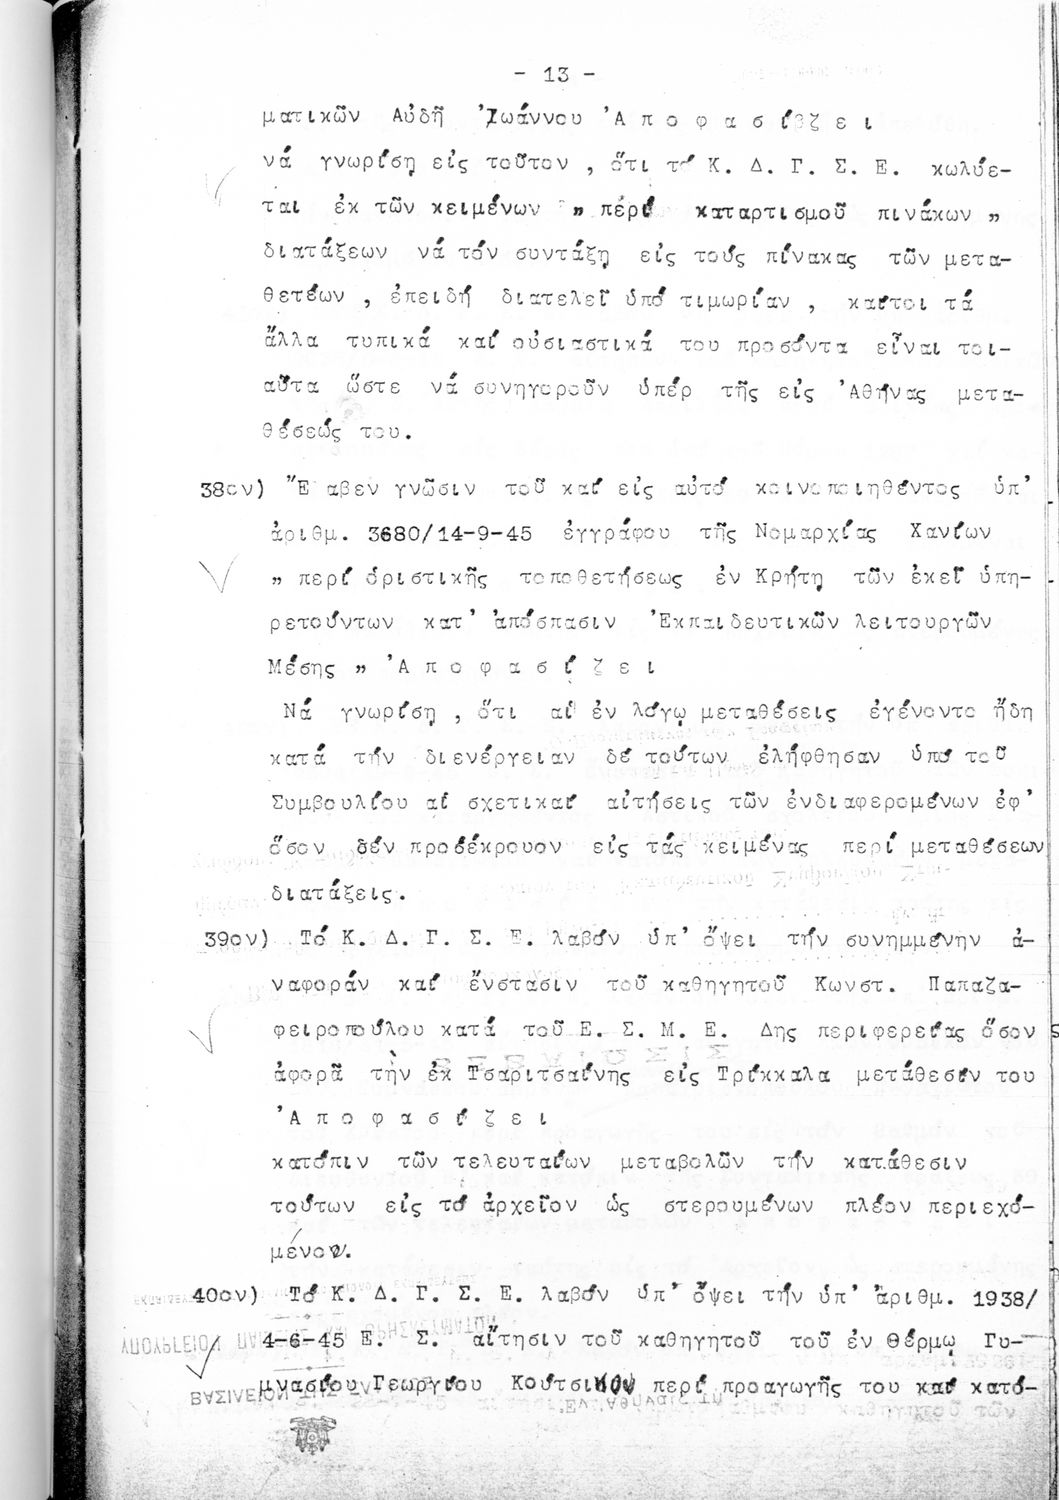 - 13 -
ματικῶν Αὐδῆ Ἰωάννου Ἀ π ο φ α σ ί ζ ε ι
νά γνωρίση εἰς τοῦτον , ὅτι τό Κ. Δ. Γ. Σ. Ε. κωλύε-
ται ἐκ τῶν κειμένων " περί καταρτισμοῦ πινάκων "
διατάξεων νά τόν συντάξη εἰς τούς πίνακας τῶν μετα-
θετέων , ἐπειδή διατελεῖ ὑπό τιμωρίαν , καίτοι τά
ἄλλα τυπικά καί οὐσιαστικά του προσόντα εἶναι τοι-
αῦτα ὥστε νά συνηγοροῦν ὑπέρ τῆς εἰς Ἀθήνας μετα-
θέσεώς του.
38ον) Ἔ αβεν γνῶσιν τοῦ καί εἰς αὐτό κοινοποιηθέντος ὑπ'
ἀριθμ. 3680/14-9-45 ἐγγράφου τῆς Νομαρχίας Χανίων
" περί ὁριστικῆς τοποθετήσεως ἐν Κρήτῃ τῶν ἐκεῖ ὑπη-
ρετούντων κατ' ἀπόσπασιν Ἐκπαιδευτικῶν λειτουργῶν
Μέσης " Ἀ π ο φ α σ ί ζ ε ι
Νά γνωρίσῃ , ὅτι αἱ ἐν λόγῳ μεταθέσεις ἐγένοντο ἤδη
κατά τήν διενέργειαν δέ τούτων ἐλήφθησαν ὑπό τοῦ
Συμβουλίου αἱ σχετικαί αἰτήσεις τῶν ἐνδιαφερομένων ἐφ'
ὅσον δέν προσέκρουον εἰς τάς κειμένας περί μεταθέσεων
διατάξεις.
39ον) Τό Κ. Δ. Γ. Σ. Ε. λαβόν ὑπ' ὄψει τήν συνημμένην ἀ-
ναφοράν καί ἔνστασιν τοῦ καθηγητοῦ Κωνστ. Παπαζα-
φειροπούλου κατά τοῦ Ε. Σ. Μ. Ε. Δης περιφερείας ὅσον
ἀφορᾶ τὴν ἐκ Τσαριτσαίνης εἰς Τρίκκαλα μετάθεσίν του
Ἀ π ο φ α σ ί ζ ε ι
κατόπιν τῶν τελευταίων μεταβολῶν τήν κατάθεσιν
τούτων εἰς τό ἀρχεῖον ὡς στερουμένων πλέον περιεχο-
μένου.
40ον) Τό Κ. Δ. Γ. Σ. Ε. λαβόν ὑπ' ὄψει τήν ὑπ' ἀριθμ. 1938/
4-6-45 Ε. Σ. αἴτησιν τοῦ καθηγητοῦ τοῦ ἐν Θέρμῳ Γυ-
μνασίου Γεωργίου περί προαγωγῆς του καί κατά-
ΥΠΟΥΡΓΕΙΟΝ
ΒΑΣΙΛΕΙΟΝ
Ἐν Ἀθήναις τῇ